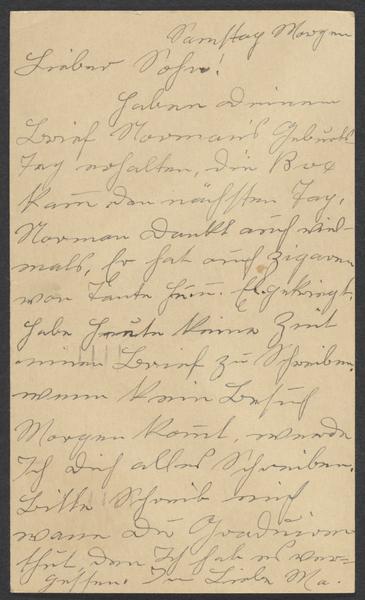 Samstag Morgen
Lieber Sohn!
Haben Deinen
Brief Norman's Geburts
Tag erhalten, die Box
kam den nächsten Tag,
Norman Dankt auch viel-
mals, Er hat auch Zigaren
von Tante gekriegt.
Habe heute keine Zeit
einen Brief zu Schreiben.
wenn kein Besuch
Morgen komt, werde
Ich Dich alles Schreiben.
Bitte Schreib mich
wann Du Graduiren
thut, den Ich hab es ver-
gessen. In Liebe Ma.